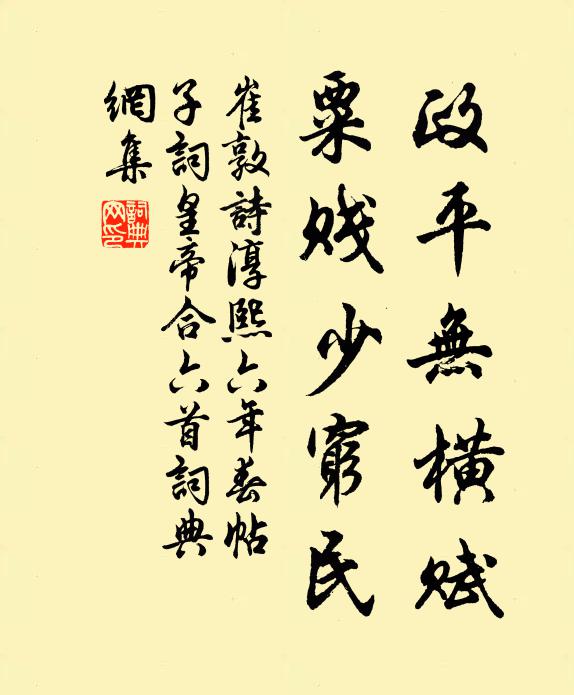 政平無橫賦
粟賤少窮民
崔敦詩淳熙六年春帖
子詞皇帝合六首詞典
網集
詞典網印